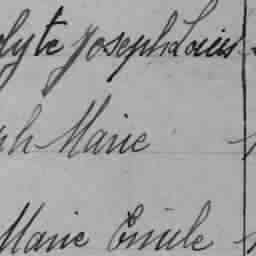 lyte Joseph Louis
ph Marie
Marie Emile